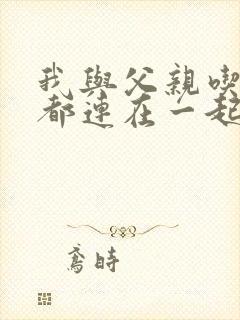 我與父親喫
都連在一起
鳶時